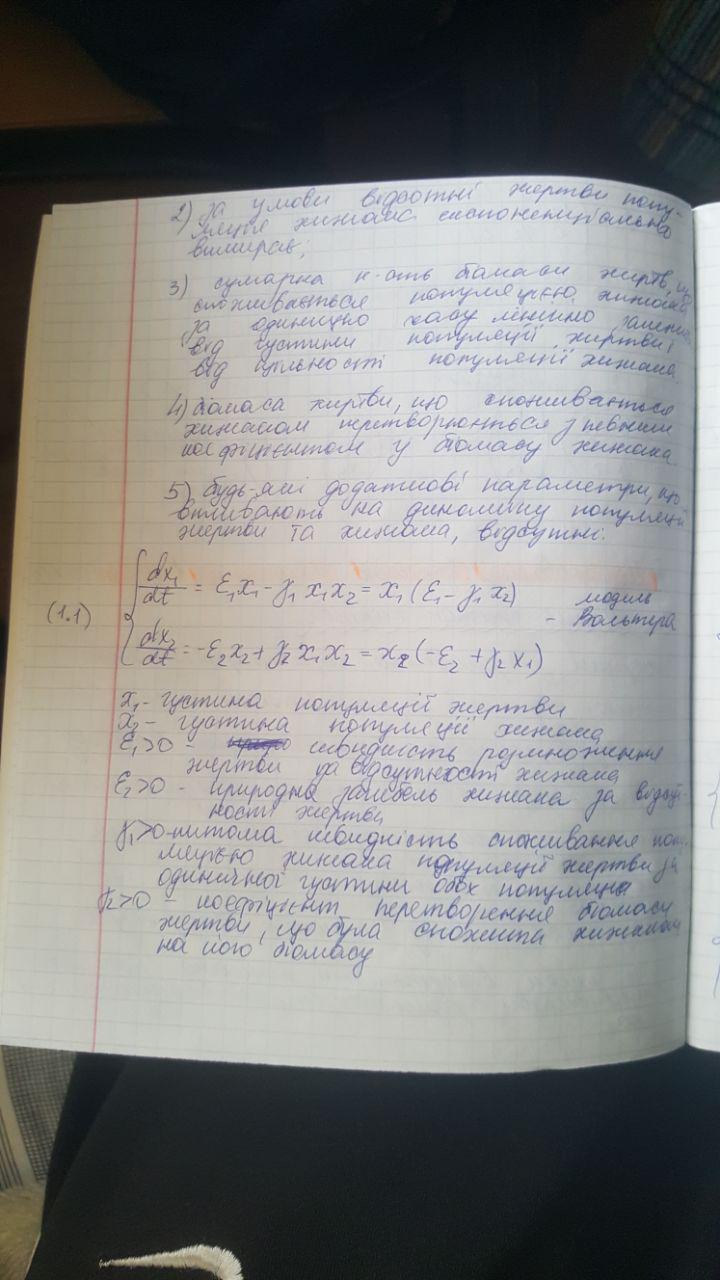 2) за умови відсотні жертви попу-
ляція хижака експоненціально
вимирає;
3) сумарна к-сть біомаси жертв, що
споживається популяцією хижака
за одиницю часу лінійно залежить
від густини популяції жертви і
від щільності популяції хижака.
4) біомаса жертви, що споживається
хижаком перетворюється з певним
коефіцієнтом у біомасу хижака
5) будь-які додаткові параметри, що
впливають на динаміку популяцій
жертви та хижака, відсутні.
(1.1) { dx₁/dt = ε₁x₁ - γ₁ x₁x₂ = x₁ (ε₁ - γ₁ x₂)
dx₂/dt = -ε₂x₂ + γ₂ x₁x₂ = x₂ (-ε₂ + γ₂ x₁)
- модель
Вольтера
x₁ - густина популяції жертви
x₂ - густина популяції хижака
ε₁>0 - швидкість розмноження
жертви за відсутності хижака
ε₂>0 - природна загибель хижака за відсут-
ності жертви
γ₁>0 - питома швидкість споживання попу-
ляцією хижака популяції жертви за
одиничної густини обох популяцій
γ₂>0 - коефіцієнт перетворення біомаси
жертви, що була спожита хижаком
на його біомасу